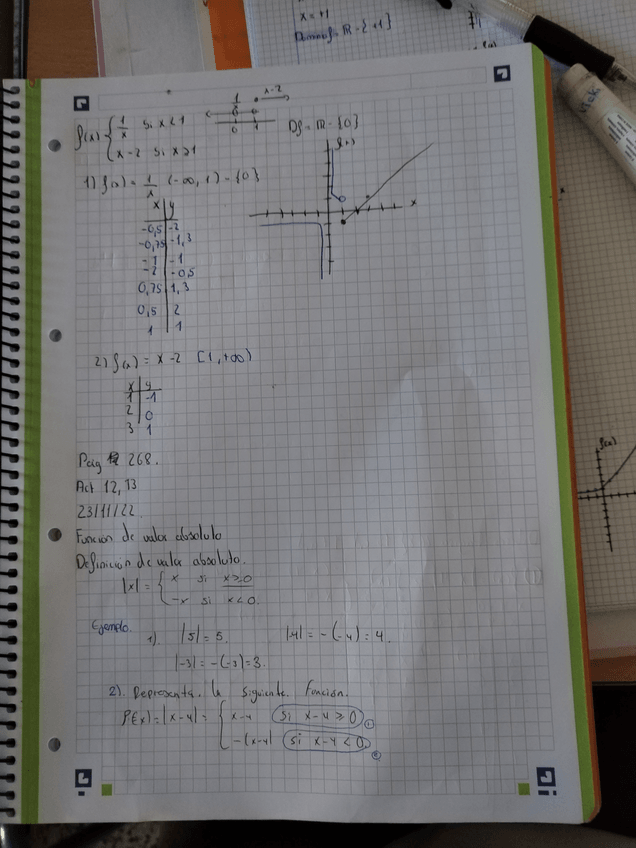 x = +1
Dom f = ℝ - {+1}
Vicki
f(x) { 1/x si x<1
x-2 si x≥1
1/x x-2
0 1
Df = ℝ - {0}
f(x)
x
1) f(x) = 1/x (-∞, 1) - {0}
x | y
-0,5 | -2
-0,75 | -1,3
-1 | -1
-2 | -0,5
0,75 | 1,3
0,5 | 2
1 | 1
2) f(x) = x-2 [1, +∞)
x | y
1 | -1
2 | 0
3 | 1
Pág 268.
Act 12, 13
23/11/22
Función de valor absoluto
Definición de valor absoluto.
|x| = { x si x≥0
-x si x<0.
Ejemplo.
1). |5| = 5. |4| = -(-4) = 4.
|-3| = -(-3) = 3.
2). Representa la siguiente función.
f(x) = |x-4| = { x-4 si x-4 ≥ 0 ①
-(x-4) si x-4 < 0. ②
f(x)